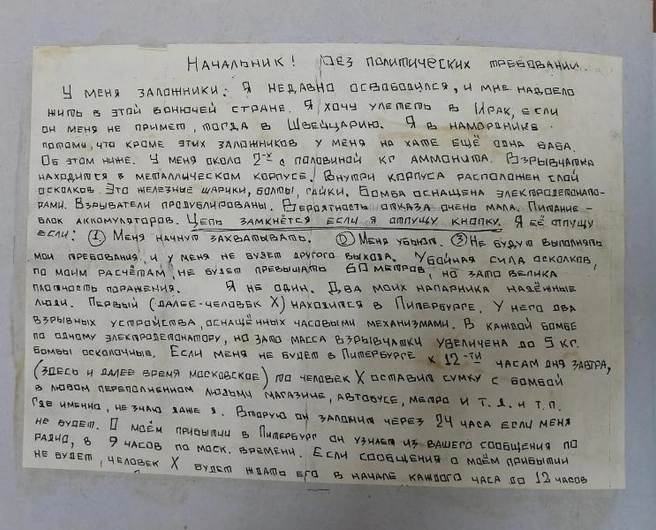 Начальник! Без политических требований.
У меня заложники. Я недавно освободился, и мне надоело
жить в этой вонючей стране. Я хочу улететь в Ирак, если
он меня не примет, тогда в Швейцарию. Я в наморднике
потому, что кроме этих заложников у меня на хате ещё одна баба.
Об этом ниже. У меня около 2-х с половиной кг аммонита. Взрывчатка
находится в металлическом корпусе. Внутри корпуса расположен слой
осколков. Это железные шарики, болты, гайки. Бомба оснащена электродетонато-
рами. Взрыватели продублированы. Вероятность отказа очень мала. Питание-
блок аккомуляторов. Цепь замкнётся если я отпущу кнопку. Я её отпущу
если: 1 Меня начнут захватывать. 2 Меня убьют. 3 Не будут выполнять
мои требования, и у меня не будет другого выхода. Убойная сила осколков,
по моим расчётам, не будет превышать 60 метров, но зато велика
плотность поражения. Я не один. Два моих напарника надёжные
люди. Первый (далее-человек X) находится в Питербурге. У него два
взрывных устройства, оснащённых часовыми механизмами. В каждой бомбе
по одному электродетонатору, но зато масса взрывчатки увеличена до 5 кг.
Бомбы осколочные. Если меня не будет в Питербурге к 12-ти часам дня завтра,
(здесь и далее время московское) то человек X оставит сумку с бомбой
в любом переполненном людьми магазине, автобусе, метро и т.д. и т.п.
Где именно, не знаю даже я. Вторую он заложит через 24 часа если меня
не будет. О моём прибытии в Питербург он узнает из вашего сообщения по
радио, в 9 часов по моск. времени. Если сообщения о моём прибытии
не будет, человек X будет ждать его в начале каждого часа до 12 часов